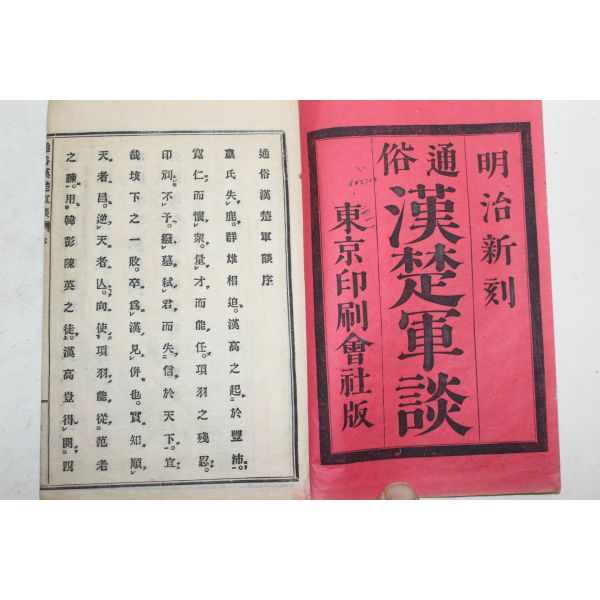 明治新刻
通俗
漢楚軍談
東京印刷會社版
通俗漢楚軍談序
嬴氏失鹿。群雄相迫。漢高之起於豐沛。
寬仁而懷衆。量才而能任。項羽之殘忍。
印刓不予。發墓弑君而失信於天下。宜
哉垓下之一敗。卒爲漢見併也。實知順
天者昌。逆天者亾。向使項羽能從范老
之諫。用韓彭陳英之徒。漢高豈得開四
通俗漢楚軍談
序